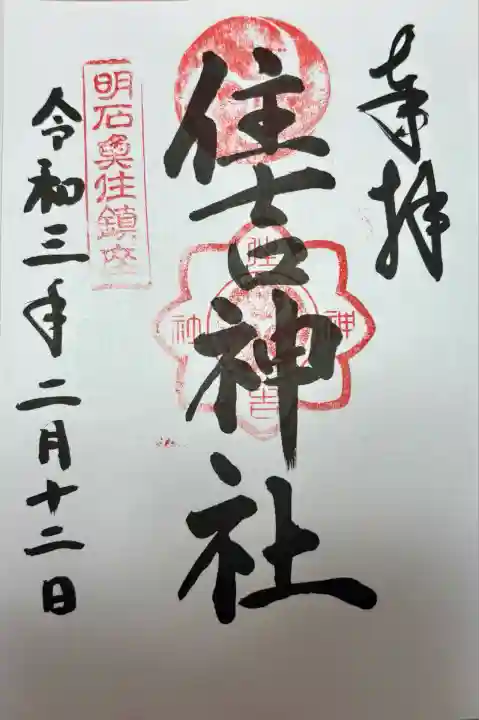 奉拝
住吉神社
住
吉
神
社
明石魚住鎮座
令和三年二月十二日